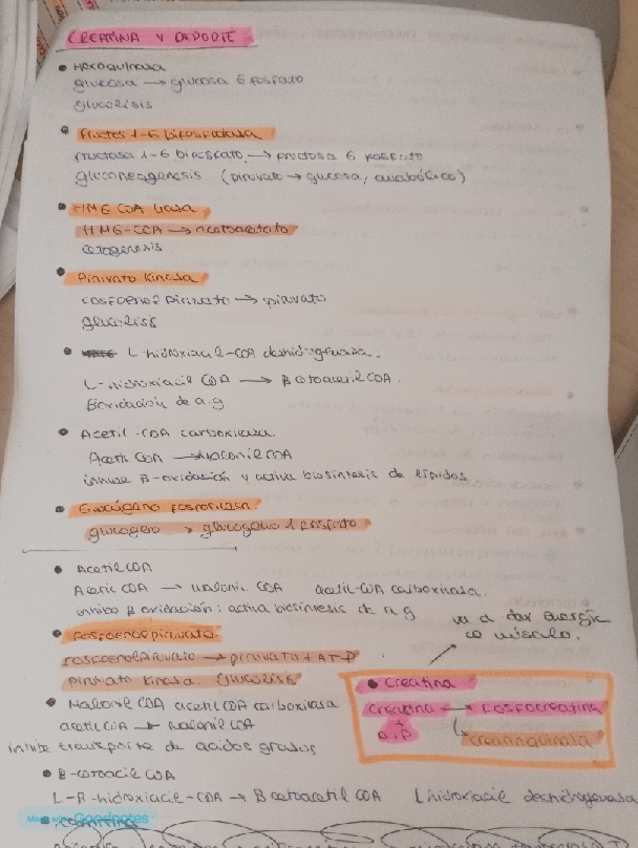 CREATINA Y DEPORTE
• Hexoquinasa
glucosa → glucosa 6 fosfato
glucolisis
• Fructos 1-6 bifosfatasa
fructosa 1-6 bifosfato → fructosa 6 fosfato
gluconeogenesis (piruvato → glucosa, anabólico)
• HMG COA liasa
HMG-COA → acetoacetato
cetogenesis
• Pirivato kinasa
fosfoenol piruvato → piruvato
glucolisis
• L-hidroxiacil-COA deshidrogenasa.
L-hidroxiacil COA → β cetoacil COA.
βoxidación de a.g.
• Acetil-COA carboxilasa.
Acetil COA → Malonil COA
inhibe β-oxidación y activa biosintesis de lípidos
• Glucógeno fosforilasa.
glucogeno → glucogeno 1 fosfato
• Acetil COA
Acetil COA → Malonil COA acetil-COA carboxilasa.
inhibe β oxidación; activa biosintesis de a.g
va a dar energía
co músculo.
• Fosfoenolpiruvato.
fosfoenolpiruvato → piruvato + ATP
piruvato kinasa. glucolisis
• Creatina
Creatina → Fosfocreatina
+
ATP
creatinquinasa
• Malonil COA acetil COA carboxilasa
acetil COA → Malonil COA
inhibe transporte de acidos grasos
• β-cetoacil COA
L-β-hidroxiacil-COA → β cetoacetil COA L hidroxiacil deshidrogenasa
Made with Goodnotes